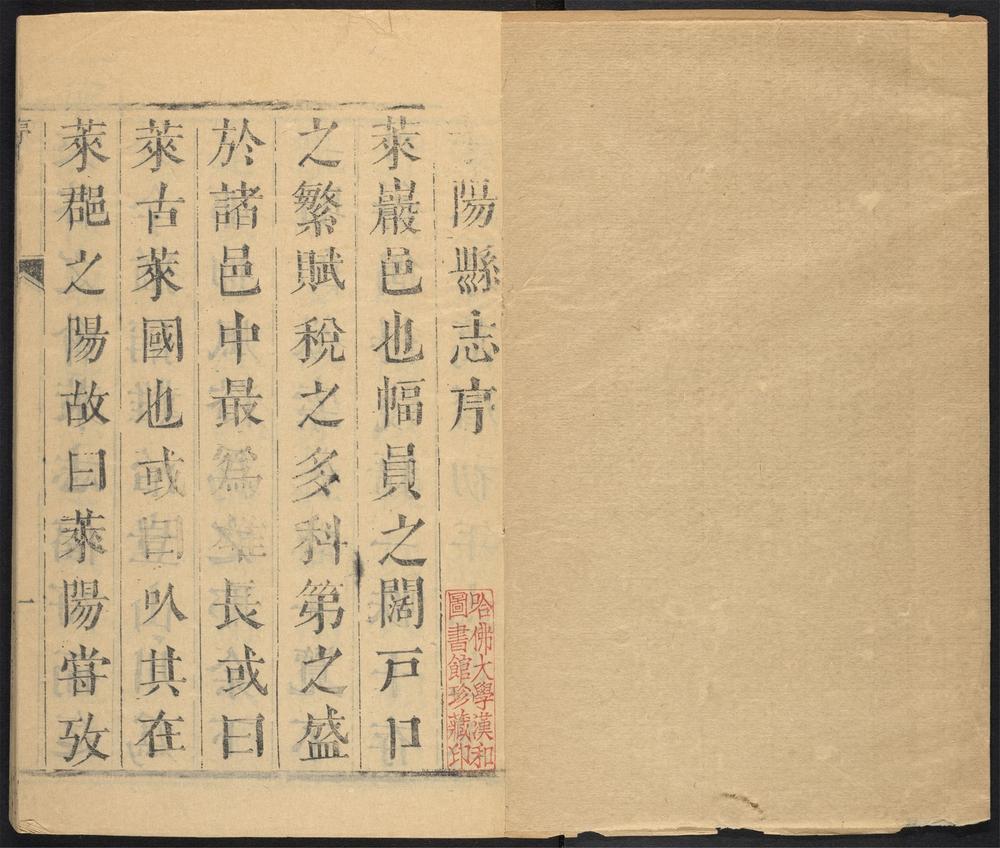 陽縣志序
萊巖邑也幅員之闊戸口
之繁賦稅之多科第之盛
於諸邑中最為延長或曰
萊古萊國也或曰以其在
萊郡之陽故曰萊陽嘗攷
序
一
哈佛大學漢和
圖書館珍藏印